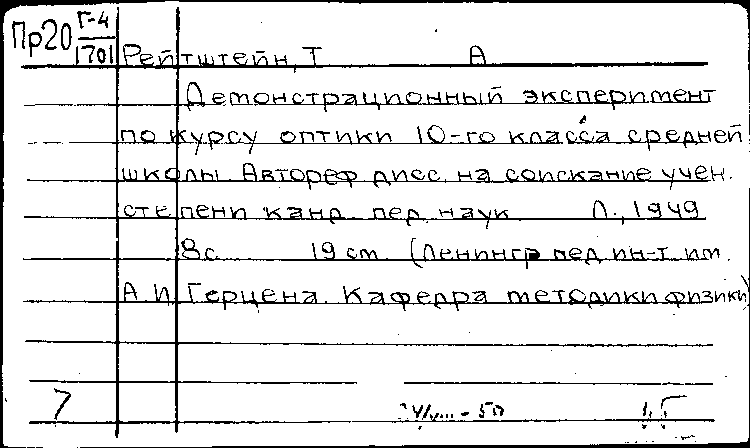 Пр20 Г-4/1701 Рейтштейн, Т А
Демонстрационный эксперимент
по курсу оптики 10-го класса средней
школы. Автореф. дисс. на соискание учен.
степени канд. пед. наук. Л., 1949
8с. 19 см. (Ленингр. пед. ин-т. им.
А.И. Герцена. Кафедра методики физики)
7